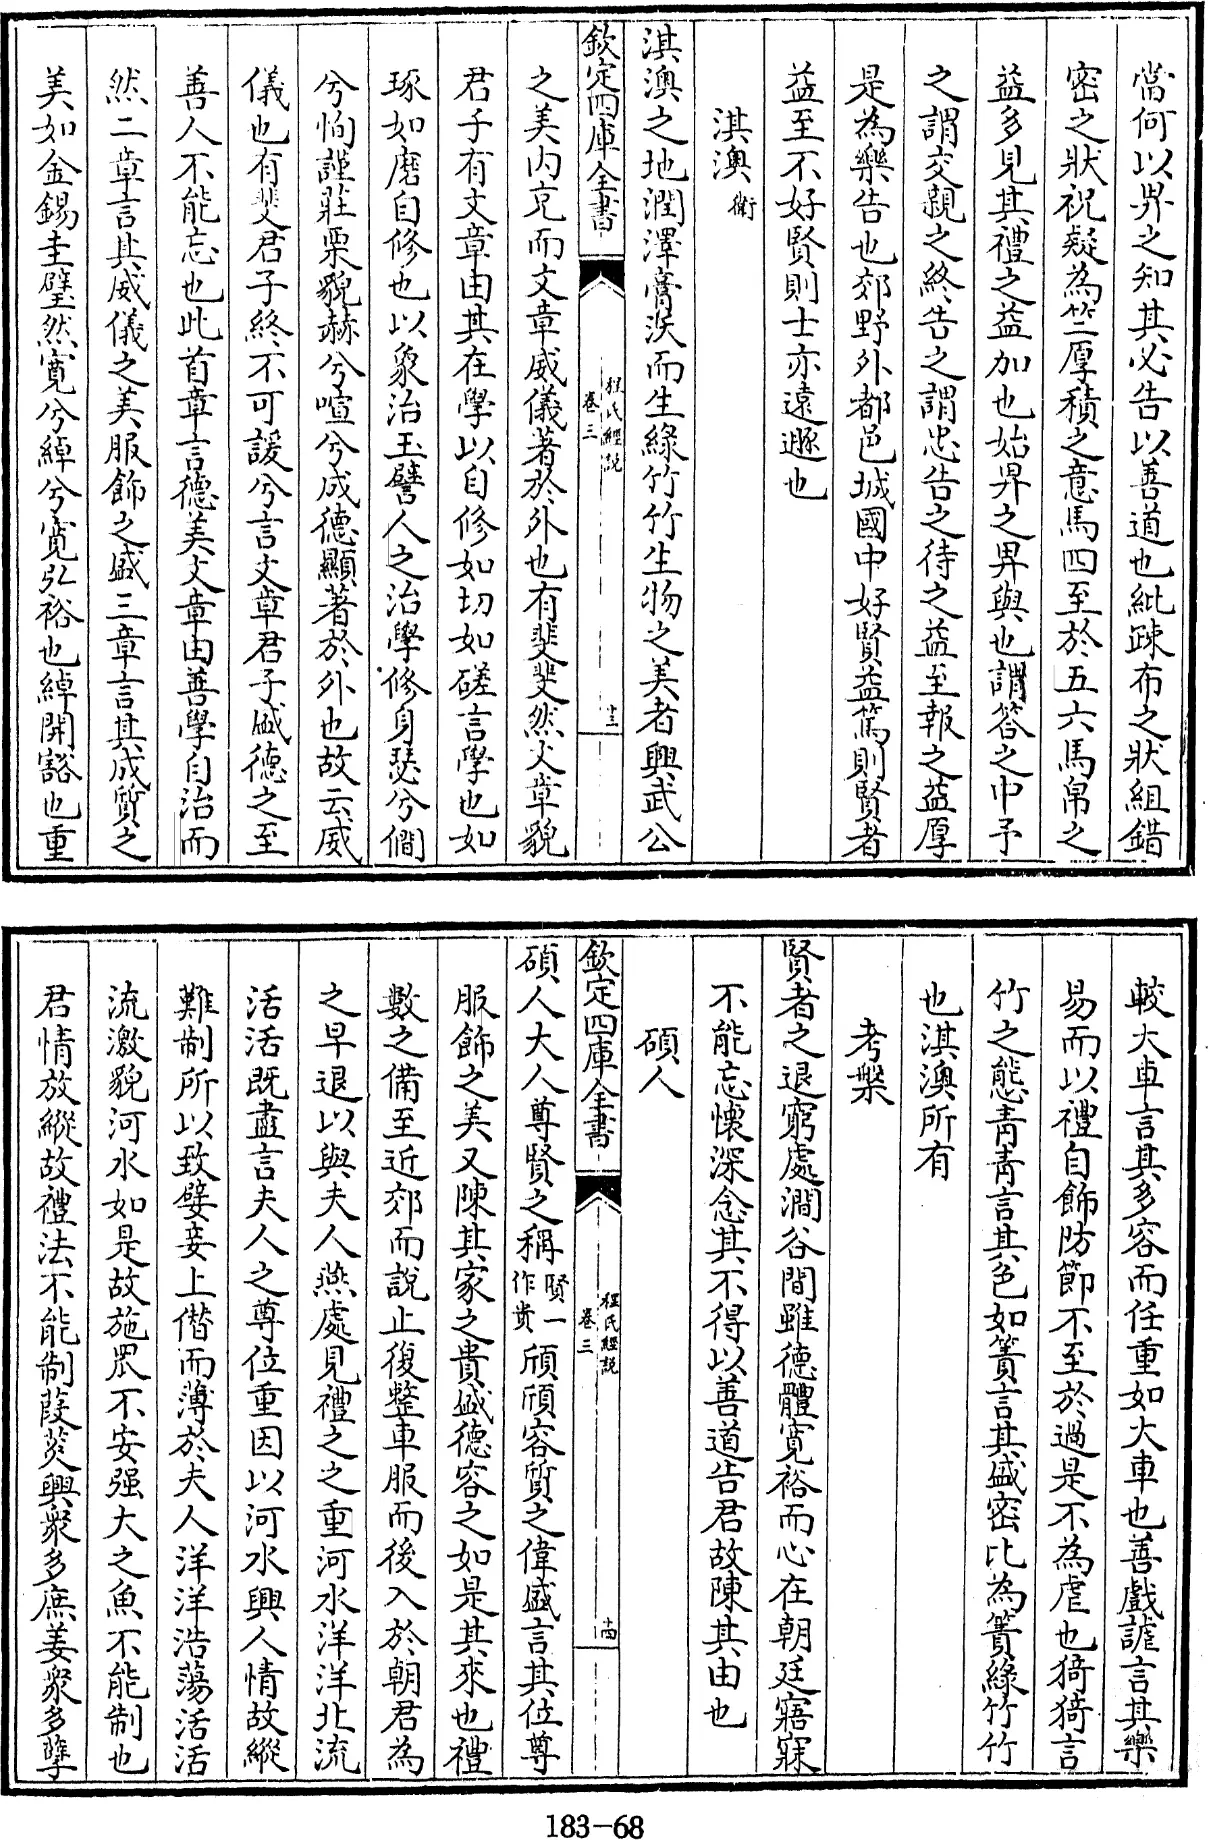 當何以畀之知其必告以善道也紕踈布之狀組錯
密之狀祝疑為竺厚積之意馬四至於五六馬帛之
益多見其禮之益加也始畀之畀與也謂答之中予
之謂交親之終告之謂忠告之待之益至報之益厚
是為樂告也郊野外都邑城國中好賢益篤則賢者
益至不好賢則士亦遠遯也
淇澳衛
淇澳之地潤澤膏沃而生綠竹竹生物之美者興武公
欽定四庫全書
程氏經説
卷三
十三
之美内充而文章威儀著於外也有斐斐然文章貌
君子有文章由其在學以自修如切如磋言學也如
琢如磨自修也以象治玉譬人之治學修身瑟兮僩
兮恂謹莊栗貌赫兮喧兮成德顯著於外也故云威
儀也有斐君子終不可諼兮言文章君子盛德之至
善人不能忘也此首章言德美文章由善學自治而
然二章言其威儀之美服飾之盛三章言其成質之
美如金錫圭璧然寛兮綽兮寛弘裕也綽開豁也重
較大車言其多容而任重如大車也善戲謔言其樂
易而以禮自飾防節不至於過是不為虐也猗猗言
竹之態青青言其色如簀言其盛密比為簀綠竹竹
也淇澳所有
考槃
賢者之退窮處澗谷間雖德體寛裕而心在朝廷寤寐
不能忘懐深念其不得以善道告君故陳其由也
碩人
欽定四庫全書
程氏經説
卷三
十四
碩人大人尊賢之稱賢一作貴頎頎容質之偉盛言其位尊
服飾之美又陳其家之貴盛德容之如是其來也禮
數之備至近郊而說止復整車服而後入於朝君為
之早退以與夫人燕處見禮之之重河水洋洋北流
活活既盡言夫人之尊位重因以河水興人情故縱
難制所以致嬖妾上僣而薄於夫人洋洋浩蕩活活
流激貌河水如是故施罛不安强大之魚不能制也
君情放縱故禮法不能制葭菼興衆多庶姜衆多孽
183-68